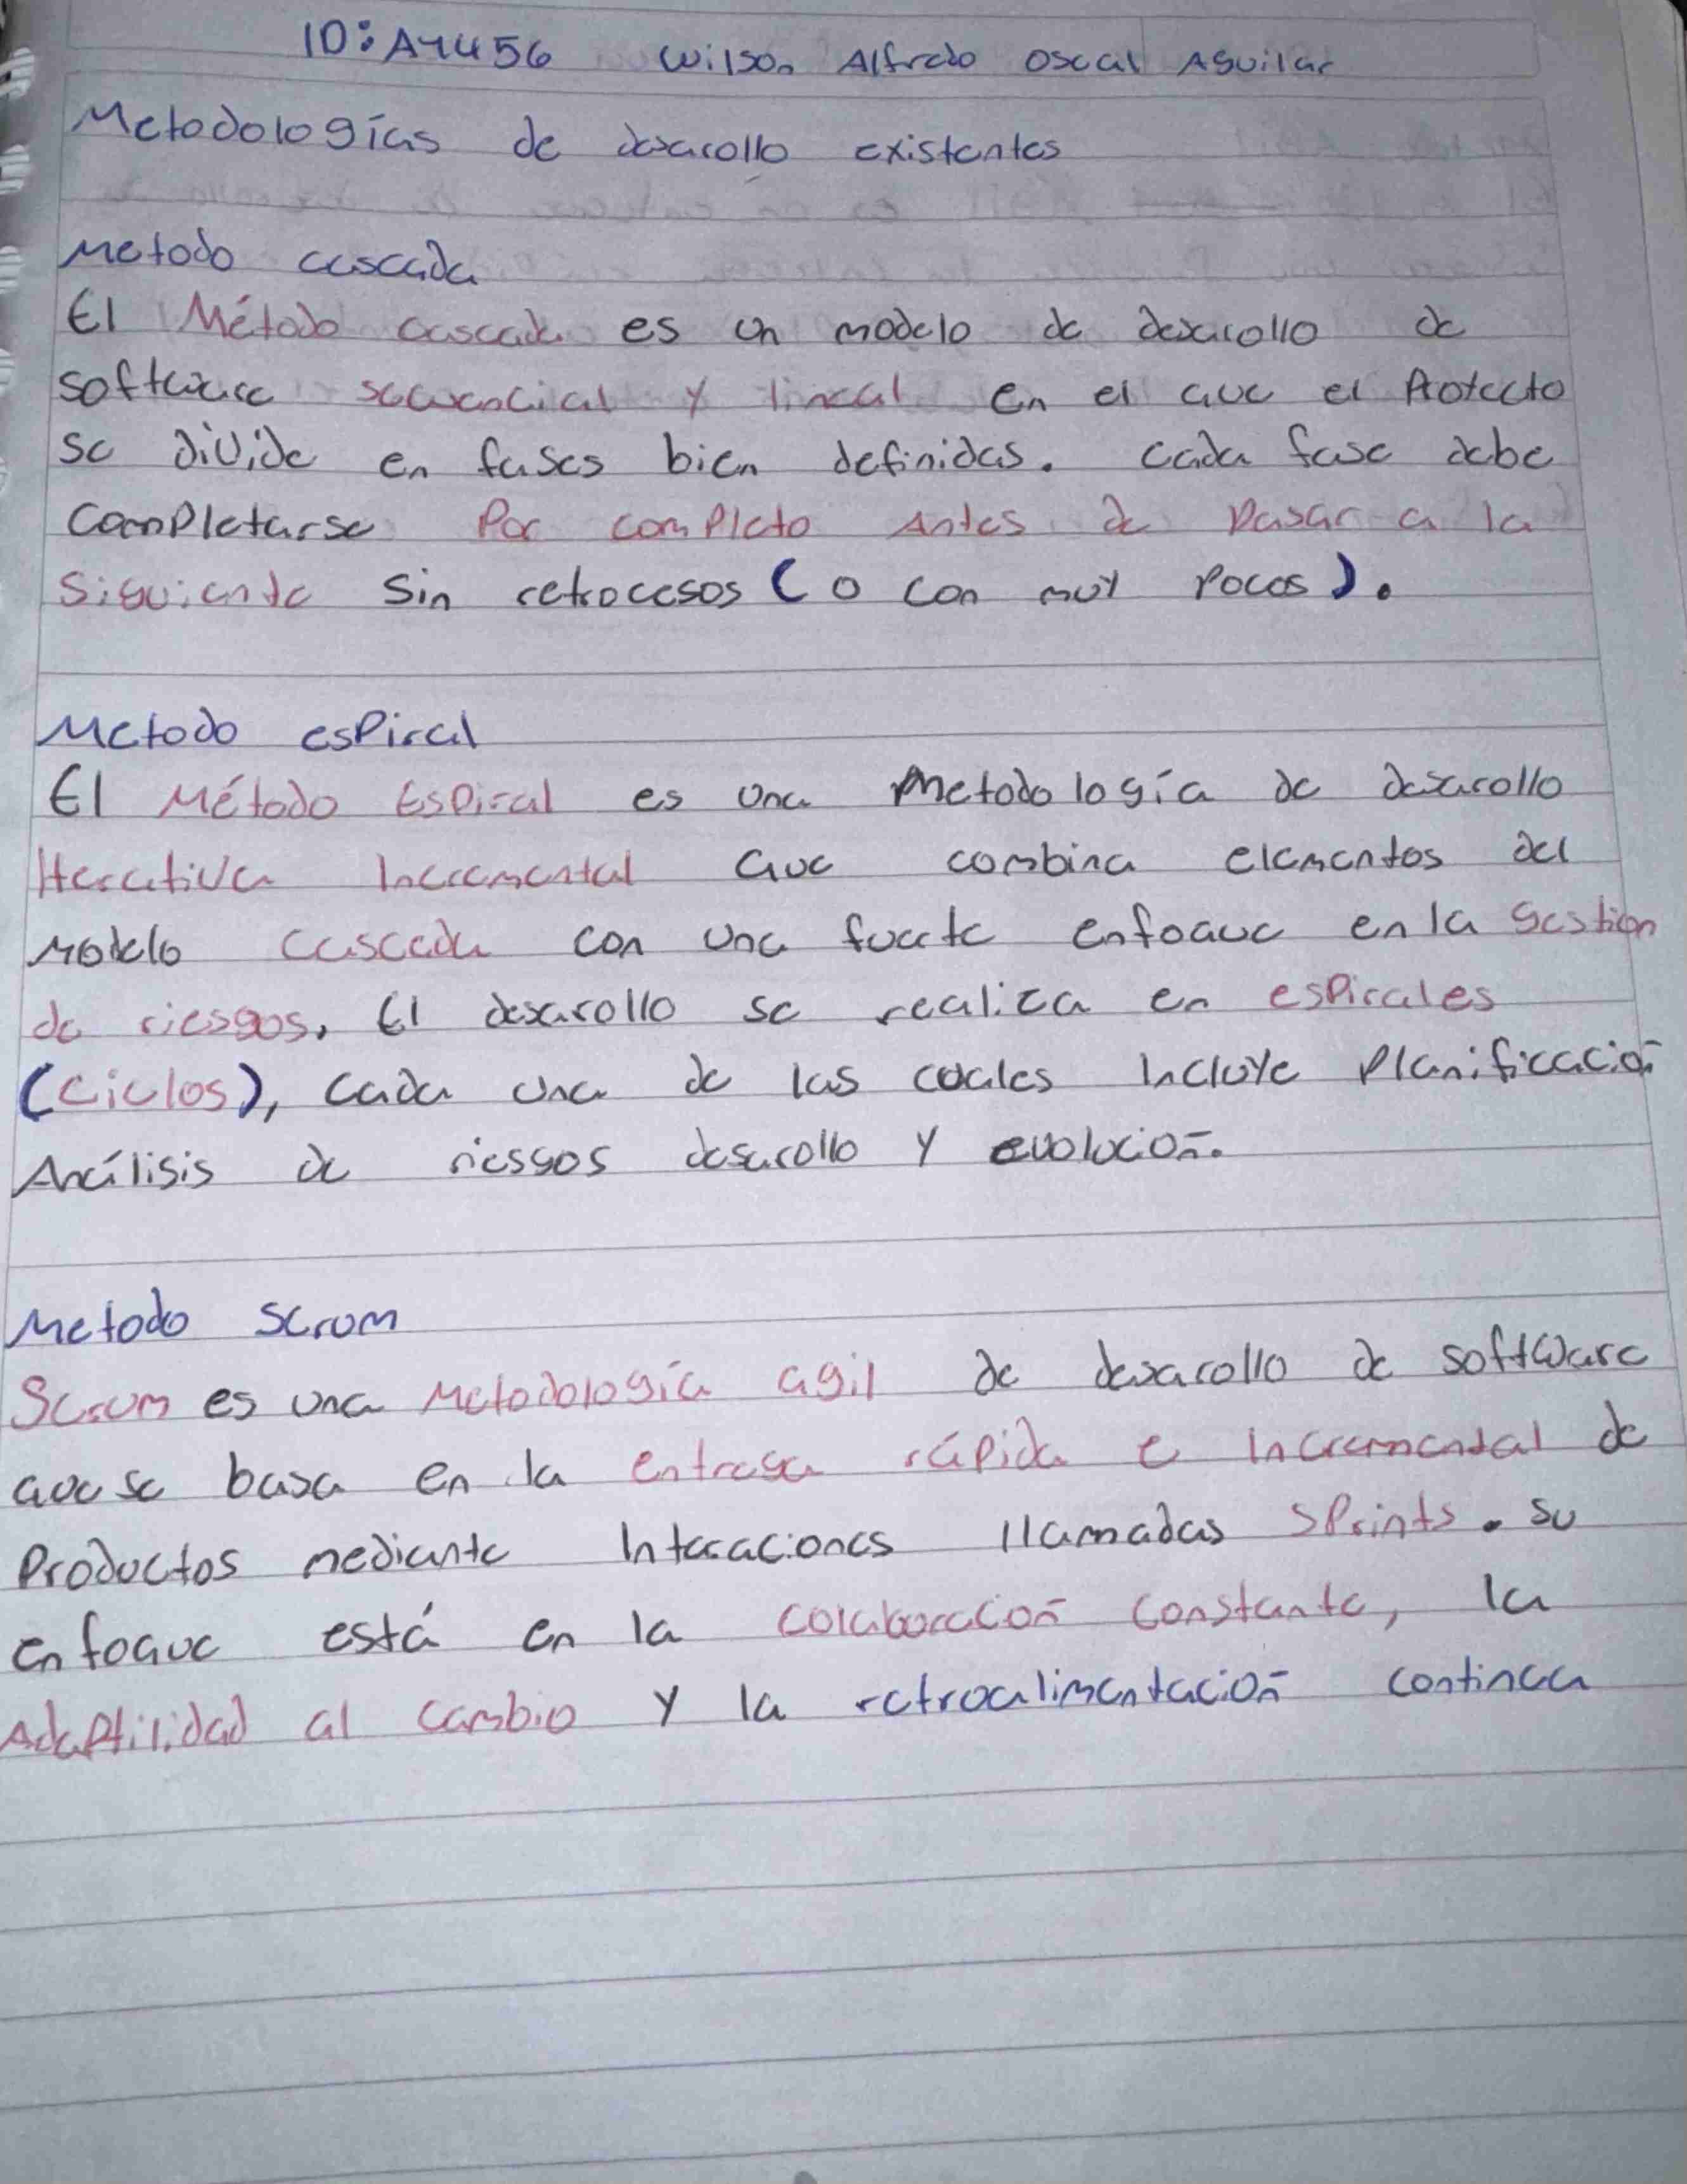 ID: A44456 Wilson Alfredo Oscal Aguilar
Metodologías de desarollo existentes
Metodo cascada
El Método cascada es un modelo de desarollo de
software secuencial y lineal en el que el Protecto
se divide en fases bien definidas. cada fase debe
completarse Por completo Antes de pasar a la
Siguiente sin retrocesos (o con muy pocos).
Metodo espiral
El Método Espiral es una Metodología de desarollo
Iterativa Incremental que combina elementos del
Modelo cascada con una fuerte enfoque en la gestion
de riesgos. El desarollo se realiza en espirales
(ciclos), cada una de las cuales Incluye Planificación
Análisis de riesgos desarollo y evolución.
Metodo scrum
Scrum es una Metodología agil de desarollo de software
que se basa en la entrega rápida e Incremental de
Productos mediante Interaciones llamadas sprints. su
enfoque está en la colaboración constante, la
Adaptilidad al cambio y la retroalimentación continua